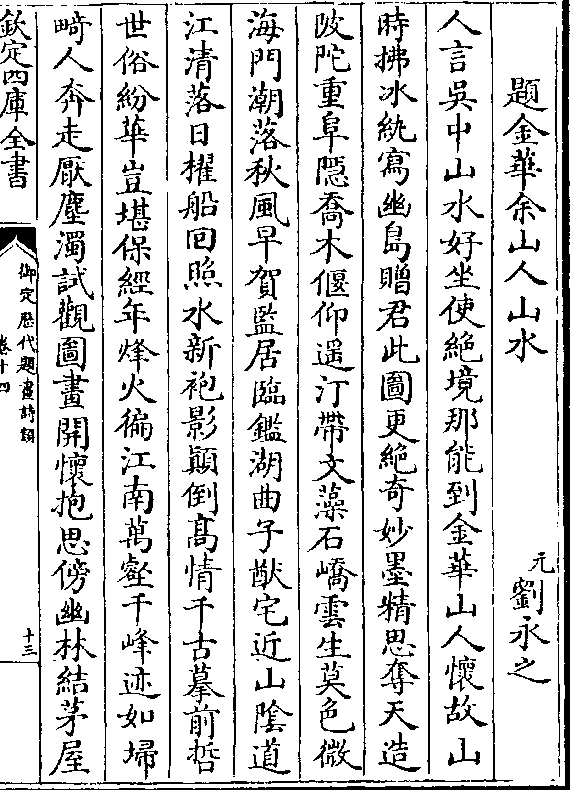 題金華余山人山水
元 劉永之
人言吳中山水好坐使絶境那能到金華山人懷故山
時拂冰紈寫幽島贈君此圖更絶奇妙墨精思奪天造
陂陀重阜隱喬木偃仰遥汀帶文藻石嶠雲生莫色微
海門潮落秋風早賀監居臨鑑湖曲子猷宅近山隂道
江清落日櫂船回照水新袍影顚倒髙情千古摹前哲
世俗紛華豈堪保經年烽火徧江南萬壑千峰迹如埽
畸人奔走厭塵濁試觀圖畫開懷抱思傍幽林結茅屋
欽定四庫全書
御定歴代題畫詩類
卷十四
十三